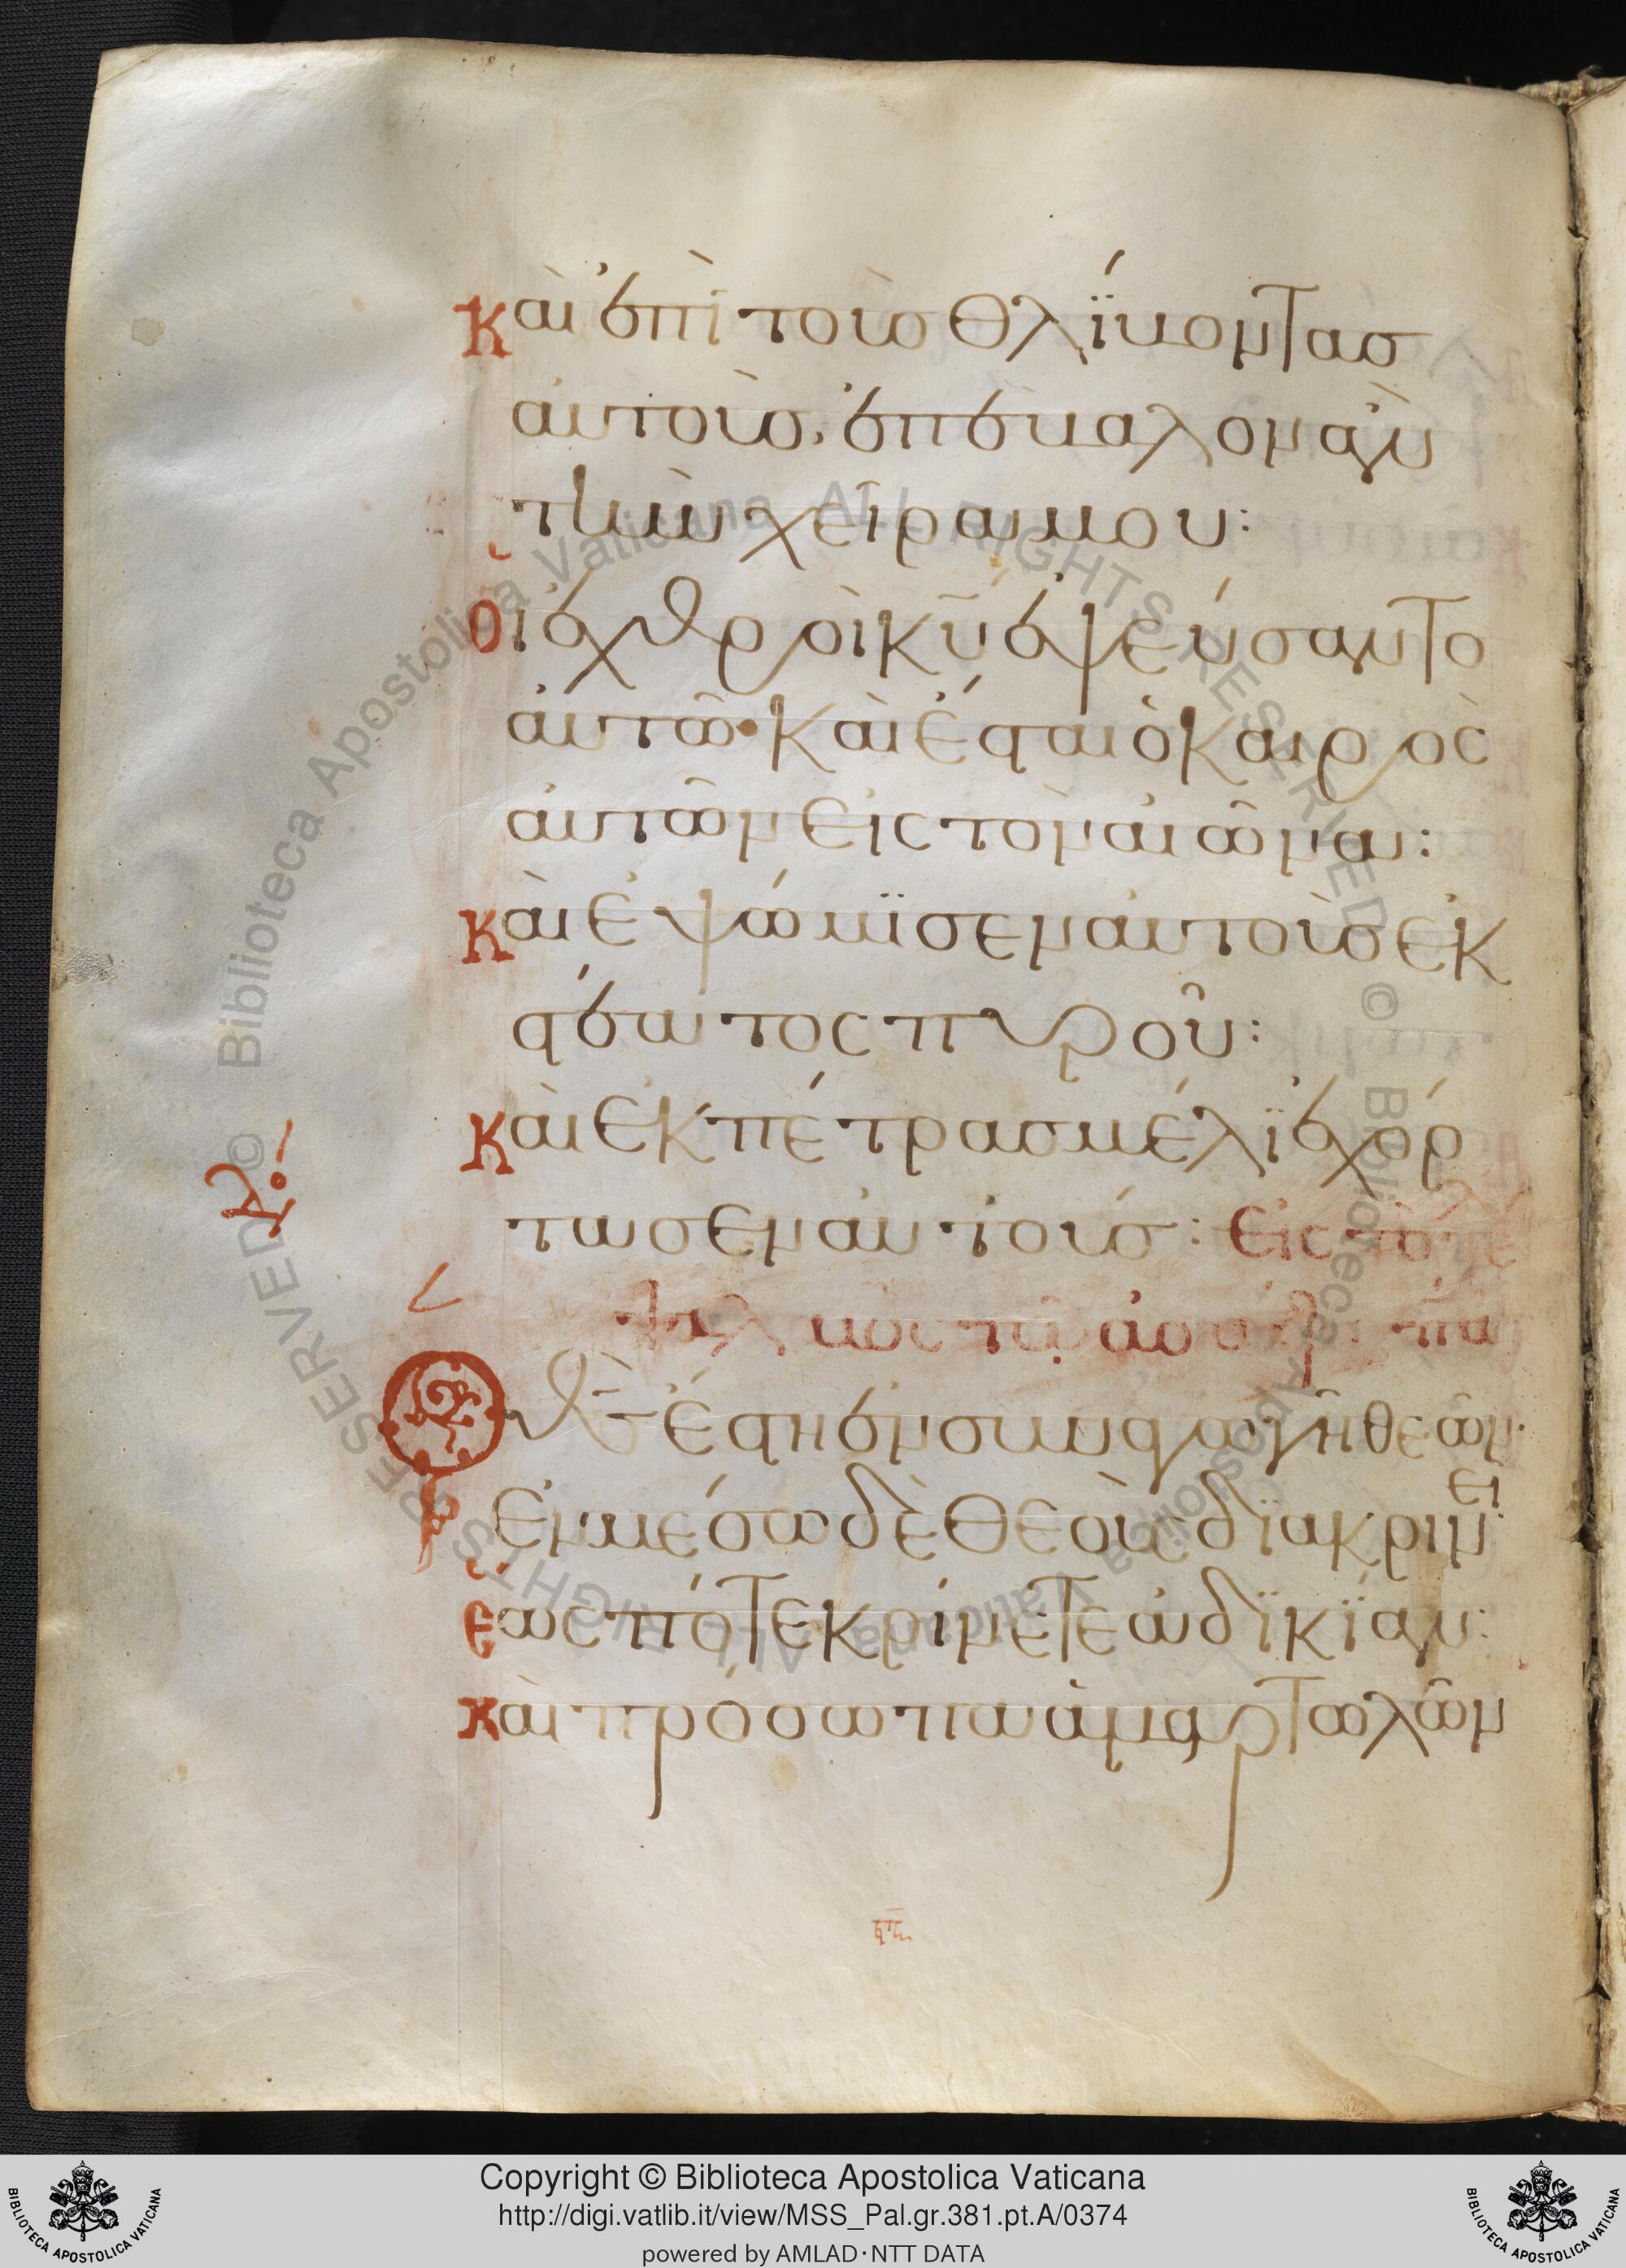 Καὶ ἐπὶ τοὺσ θλίβοντασ
αὐτοὺσ, ἐπέβαλον ἂν
τὴν χεῖρα μου:
Οἱ ἐχθροὶ κ̅υ̅ ἐψεύσαντο
αὐτῶ· καὶ ἔσται ὁ καιρὸς
αὐτῶν εἰς τὸν αἰῶνα:
Καὶ ἐψώμϊσεν αὐτοὺσ ἐκ
στέατος πυροῦ:
Καὶ ἐκ πέτρασ μέλϊ ἐχόρ
τασεν αὐτούσ: εἰς τὸ τέ
ψαλμὸς τῷ ἀσάφ
Ο θ̅ς̅ ἔστη ἐν συναγωγῆ θεῶν·
Ἐν μέσω δὲ θεοὺς διακρινεῖ·
Ἕως πότε κρίνετε ἀδϊκΐαν:
Καὶ πρόσωπα ἁμαρτωλῶν
Copyright © Biblioteca Apostolica Vaticana
http://digi.vatlib.it/view/MSS_Pal.gr.381.pt.A/0374
powered by AMLAD·NTT DATA
BIBLIOTECA APOSTOLICA VATICANA
BIBLIOTECA APOSTOLICA VATICANA
© Biblioteca Apostolica Vaticana ALL RIGHTS RESERVED © Biblioteca Apostolica Vaticana ALL RIGHTS RESERVED